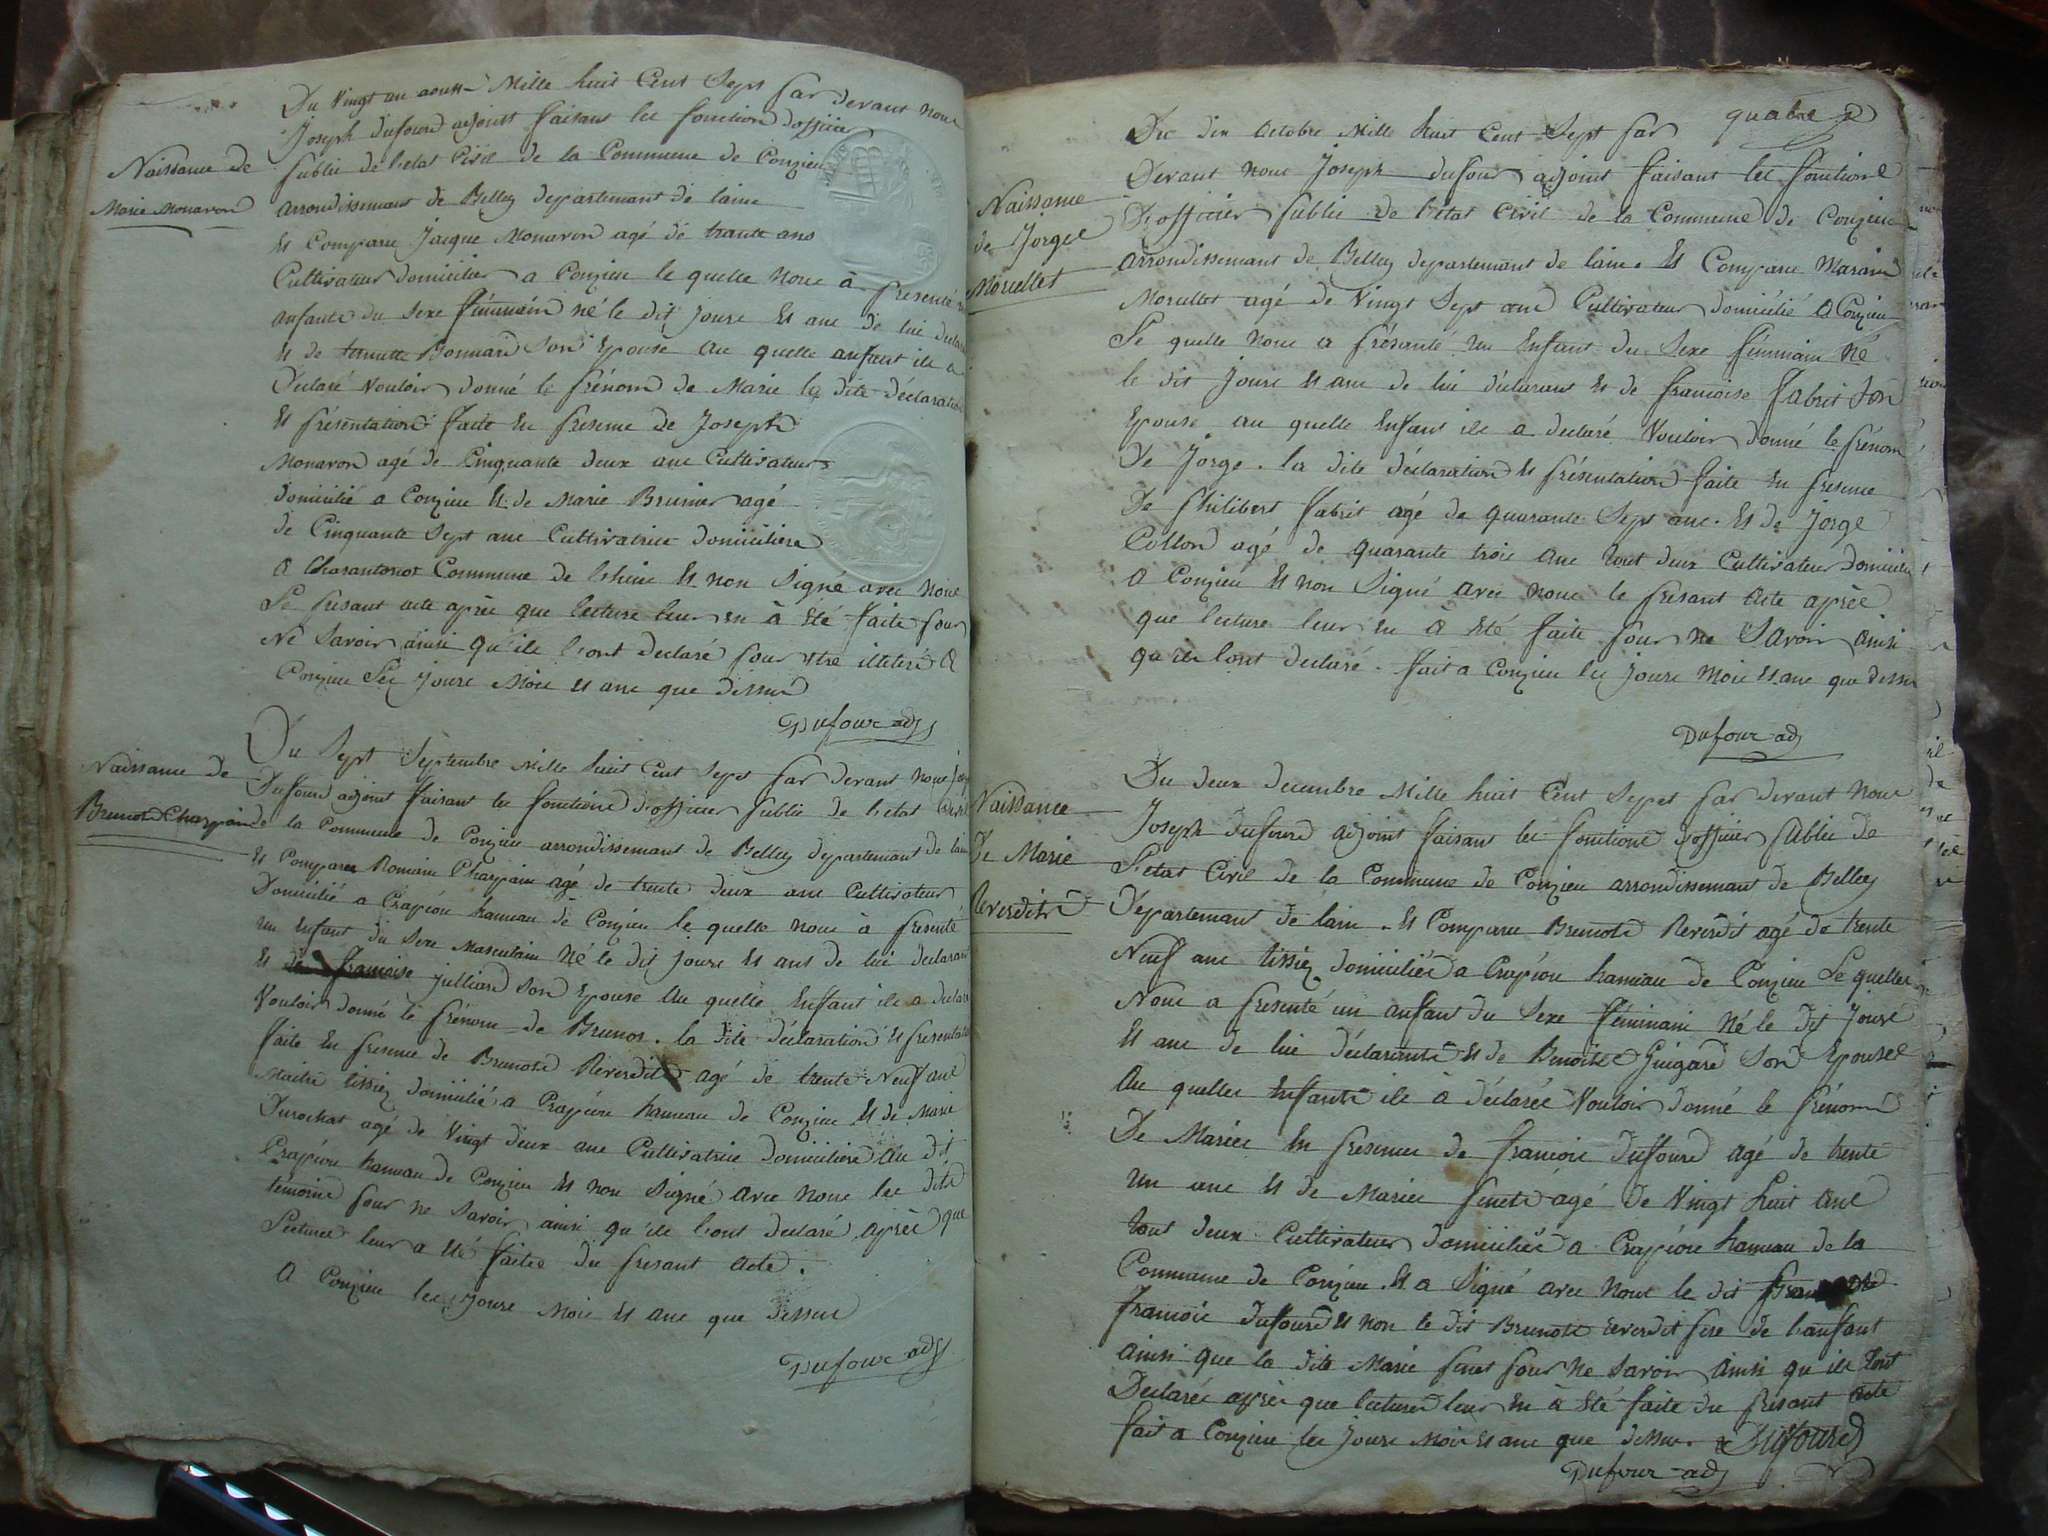 Du Vingt un aoust Mille huit Cent Sept par devant nous
Joseph dufourd adjoint faisant les fonction dofficier
public de letat Civil de la Commune de Conzieu
arrondissemant de Belley departemant de laine
Naissance de
Marie Monavon
Et Comparu Jacque Monavon agé de trante ans
Cultivateur domicilier a Conzieu le quelle nous à présenté
anfante du Sexe féminin né le dit jours Et ans de lui
Et de Bonnard Son Epouse au quelle anfant ile a
Déclaré Vouloir donné le prénom de Marie la dite déclaration
Et présentation faite En presence de Joseph
Monavon agé de Cinquante deux ans Cultivateur
domicilié a Conzieu Et de Marie Brunier agé
de Cinquante Sept ans Cultivatrice domicilière
a Charantonot Commune de Et non Signé avec nous
Le presant acte après que lecture leur En à Eté faite pour
Ne Savoir ainsi qu'ile lont declaré pour Etre illeteré a
Conzieu Les jours Mois Et ans que dessus
Dufour adj
Du Sept Septembre Mille huit Cent Sept par devant nous
Dufourd adjoint faisant les fonctions d'officier public de letat Civil
Naissance de
Brunod Charpin
de la Commune de Conzieu arrondissemant de Belley departemant de lain
Et Comparu Romain Charpin agé de trente deux ans Cultivateur
Domicilié a Crapéou hameau de Conzieu le quelle nous à presenté
un Enfant du Sexe Masculain Né le dit jours Et ans de lui declarant
Et de francoise julliard Son Epouse au quelle Enfant ile a declaré
Vouloir donné le prénom de Brunos. la dite déclaration Et presentation
faite En presence de Brunod Reverdit agé de trente Neuf ans
Maitre tissiez domicilié a Crapéou hameau de Conzieu Et de Marie
Durochat agé de Vingt deux ans Cultivatrice domicilière au dit
Crapéou hameau de Conzieu Et non Signé avec nous les dits
témoins pour ne Savoir ainsi qu'ile lont declaré après que
Lecture leur a Eté faites du presant acte.
a Conzieu les jours Mois Et ans que dessus
Dufour adj
quatre
Du dix octobre Mille huit Cent Sept par
Devant nous Joseph dufour adjoint faisant les fonctions
D'officier public de l'état Civil de la Commune de Conzieu
Naissance
de Jorge
Morullet
arrondissemant de Belley departemant de lain. Et Comparu
Morullet agé de Vingt Sept ans Cultivateur domicilié a Conzieu
Le quelle nous a présanté un Enfant du Sexe féminin né
le dit jours Et ans de lui déclarant Et de francoise fabrit Son
Epouse au quelle Enfant ile a declaré Vouloir donné le prénom
De Jorge. la dite déclaration Et présentation faite En presence
De philibert fabrit agé de quarante Sept ans. Et de Jorge
Collond agé de quarante trois ans tout deux Cultivateur domicilié
a Conzieu Et non Signé avec nous le presant acte après
que lecture leur En à Eté faite pour ne Savoir ainsi
qu'ile lont declaré. fait a Conzieu les jours Mois Et ans que dessus
Dufour adj
Du deux decembre Mille huit Cent Sept par devant nous
Joseph dufourd adjoint faisant les fonctions d'officier public de
Naissance
De Marie
Reverdit
L'etat Civil de la Commune de Conzieu arrondissemant de Belley
Départemant de lain. Et Comparu Brunod Reverdit agé de trente
Neuf ans tissiez domicilié a Crapéou hameau de Conzieu Le quelle
Nous a presenté un anfant du Sexe féminin Né le dit Jours
Et ans de lui déclarant Et de Benoite Guigard Son Epouse
Au quelles Enfants ile à déclarée Vouloir donné le prénom
De Maries En presence de francois duffourd agé de trente
un ans Et de Maries agé De Vingt huit ans
tout deux Cultivateur domiciliés a Crapéou hameau de la
Commune de Conzieu. Et a Signé avec nous le dit
francois dufourd Et non le dit Brunod reverdit pere de lanfant
ainsi que la dite Marie pour ne Savoir ainsi qu'ile lont
Declarés après que lecture leur En à Eté faite du presant acte
fait a Conzieu les jours Mois Et ans que dessus. Duffourd
Dufour adj